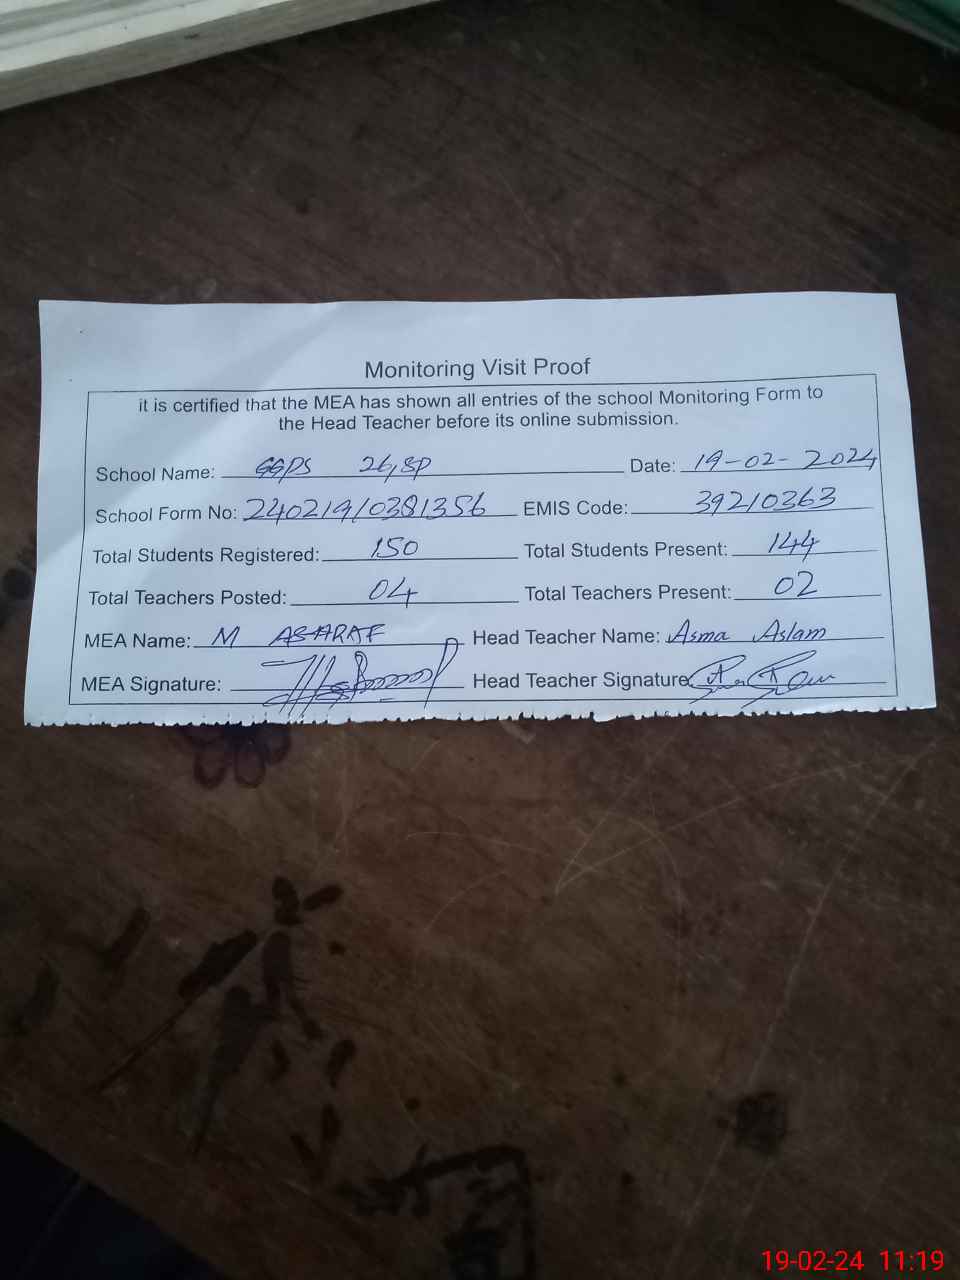 Monitoring Visit Proof
it is certified that the MEA has shown all entries of the school Monitoring Form to
the Head Teacher before its online submission.
School Name: GGPS 26,SP Date: 19-02-2024
School Form No: 240219/0381356 EMIS Code: 39210363
Total Students Registered: 150 Total Students Present: 144
Total Teachers Posted: 04 Total Teachers Present: 02
MEA Name: M ASHRAF Head Teacher Name: Asma Aslam
MEA Signature: Head Teacher Signature
19-02-24 11:19